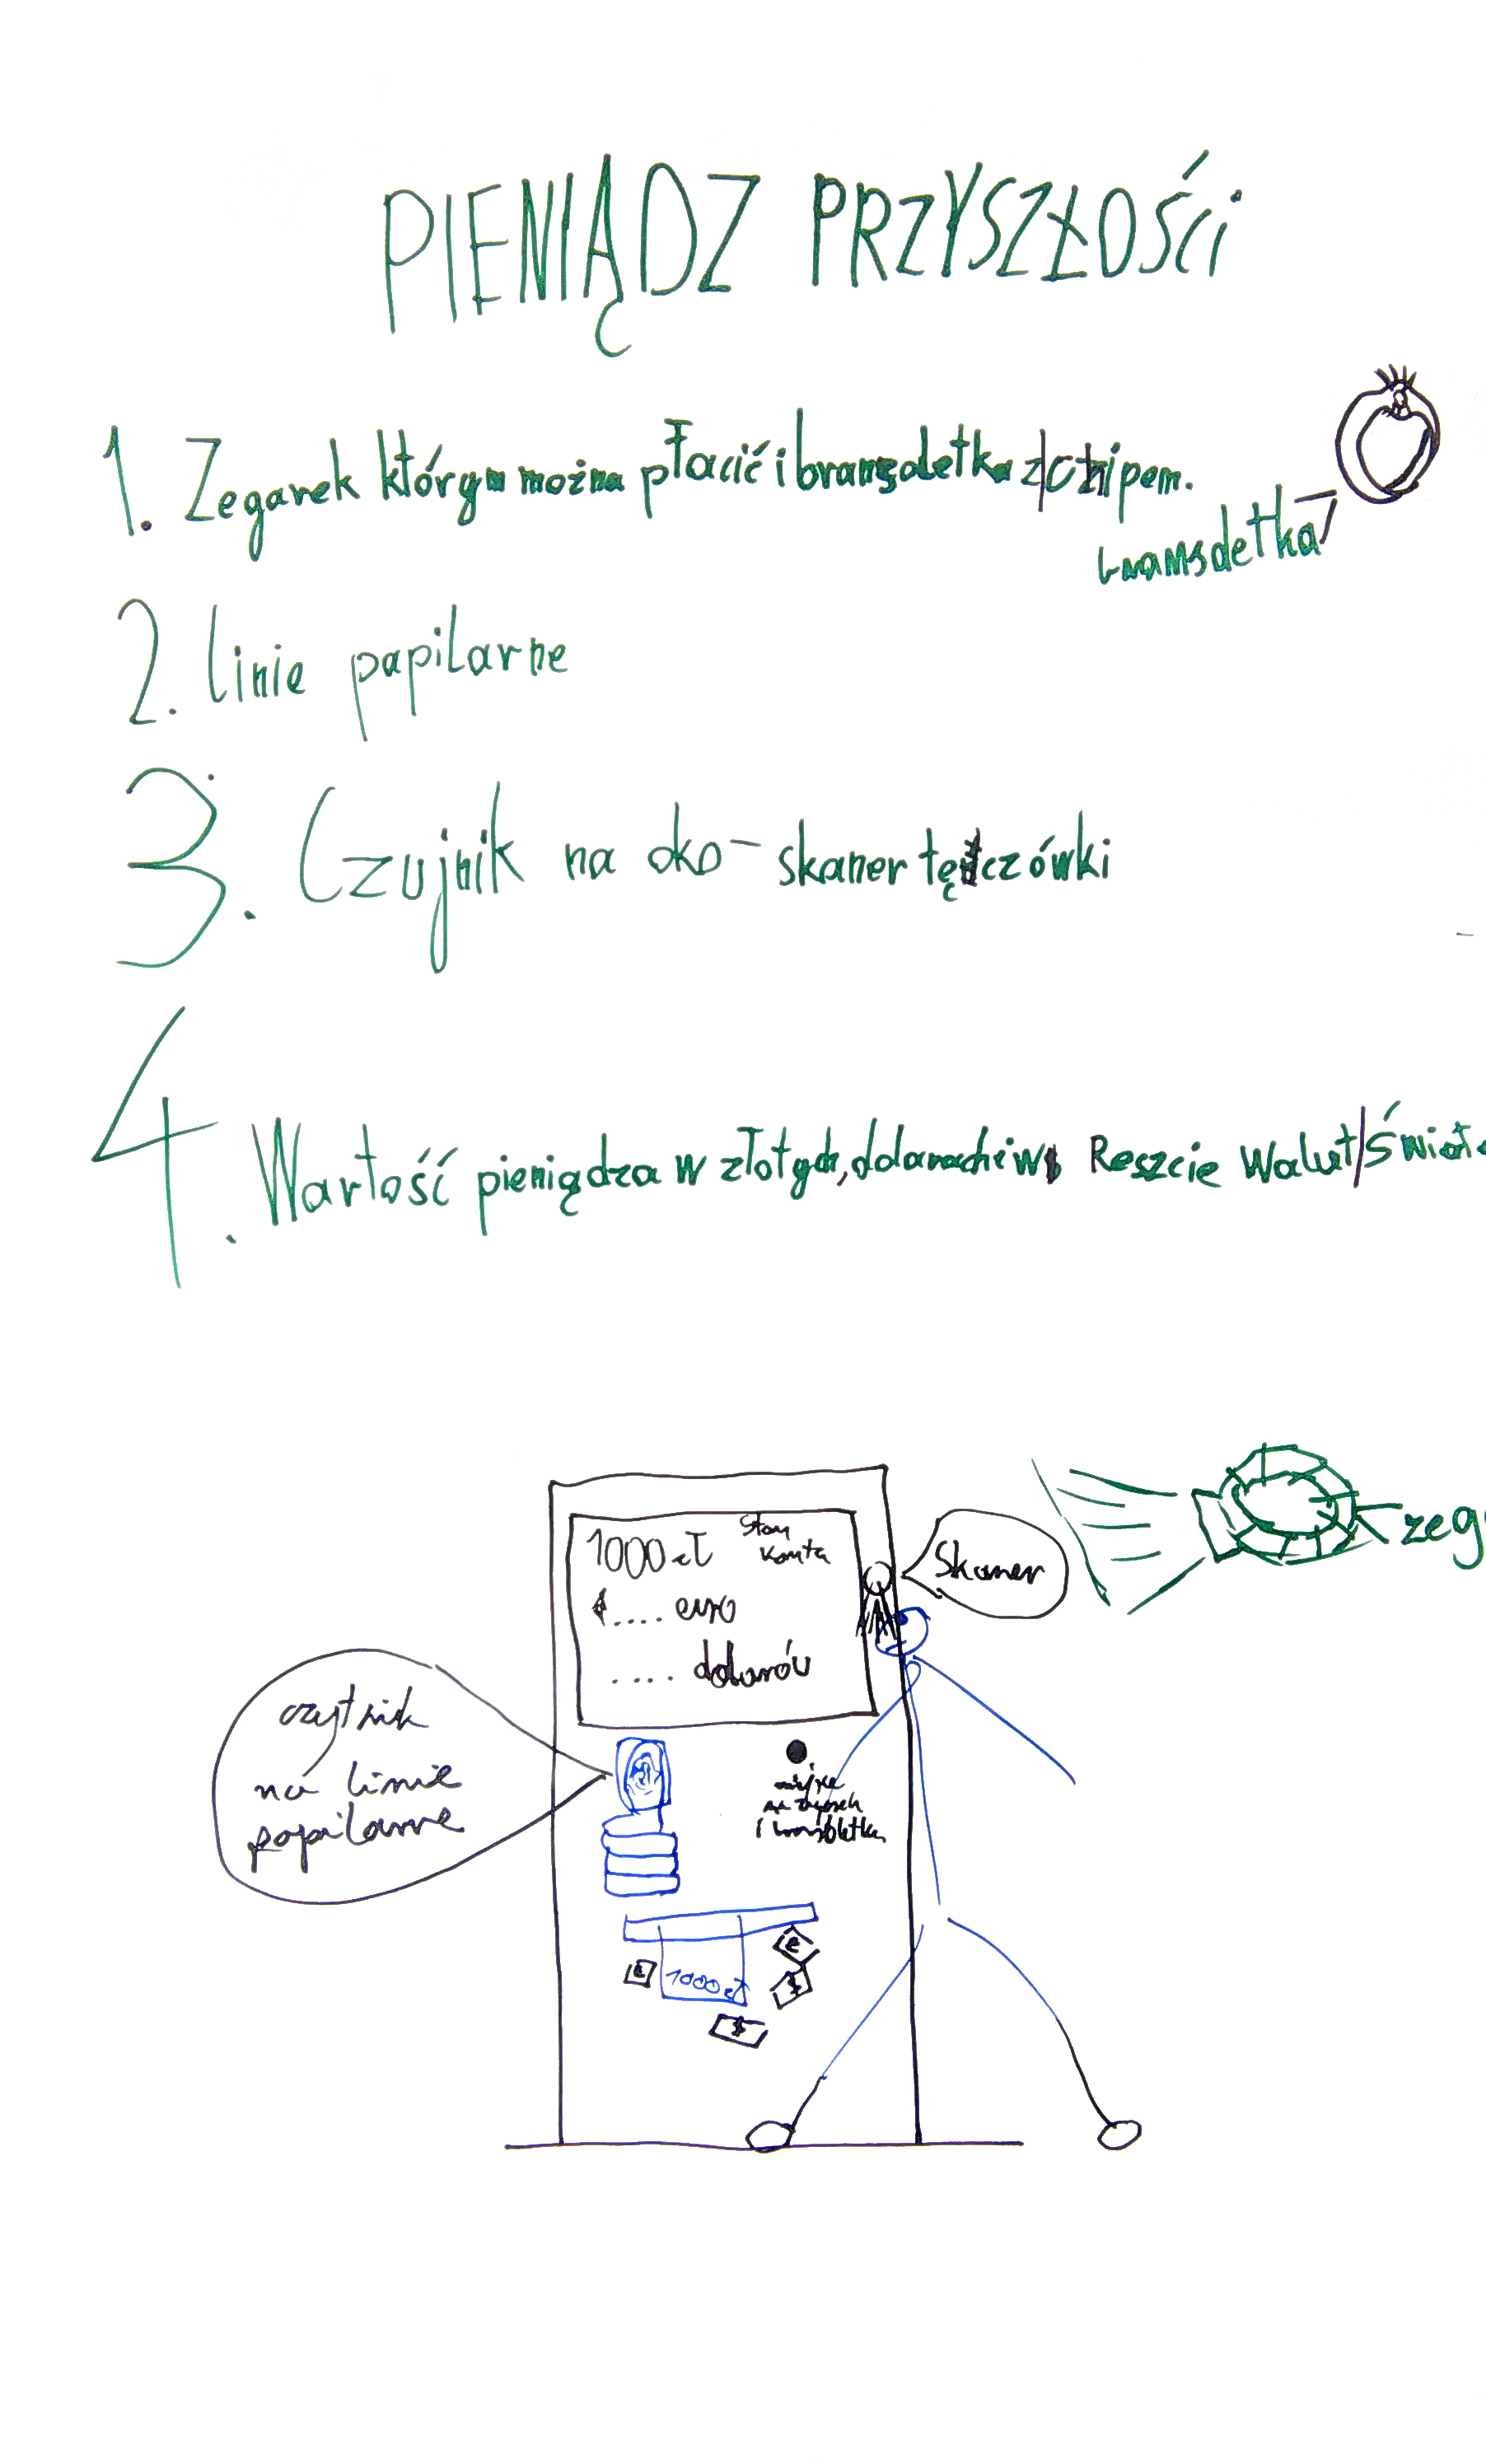 PIENIĄDZ PRZYSZŁOŚCi
1. Zegarek którym można płacić i bransoletka z chipem.
bransoletka
2. linie papilarne
3. Czujnik na oko - skaner tęczówki
4. Wartość pieniądza w złotych, dolarach i w Reszcie Walut Świat
1000 zł stan konta
.... euro
..... dolarów
Skaner
zeg
czytnik
na linie
papilarne
miejsce
na zegarek
i bransoletkę
1000 zł